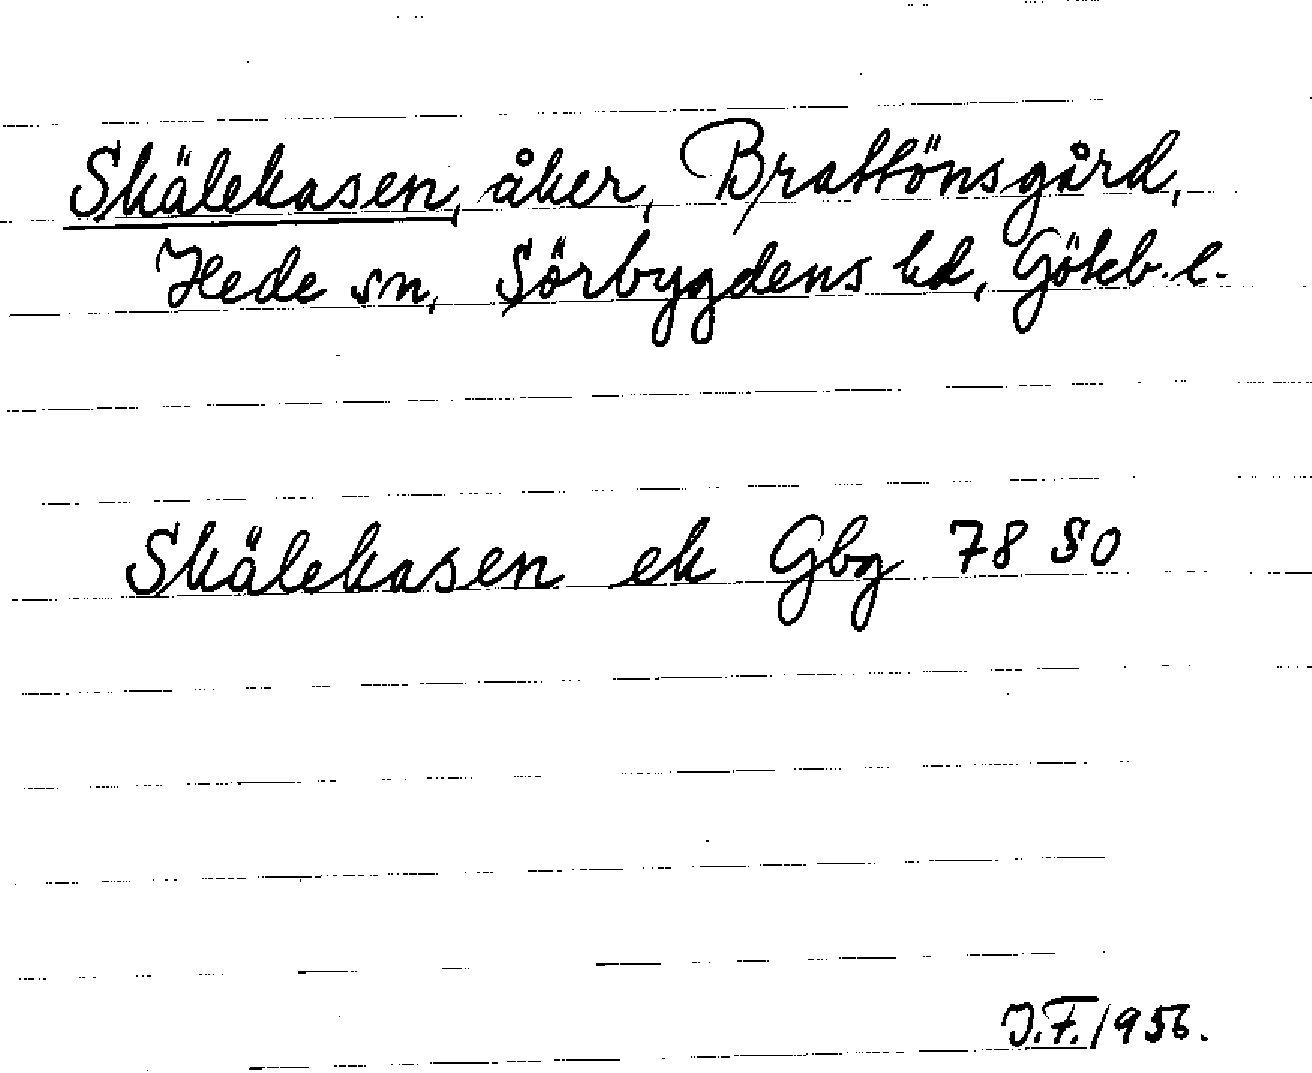 Skälekasen, åker, Brattönsgård,
Hede sn, Sörbygdens hd, Göteb. l.
Skälekasen ek Gbg 78 SO
J.F. 1956.